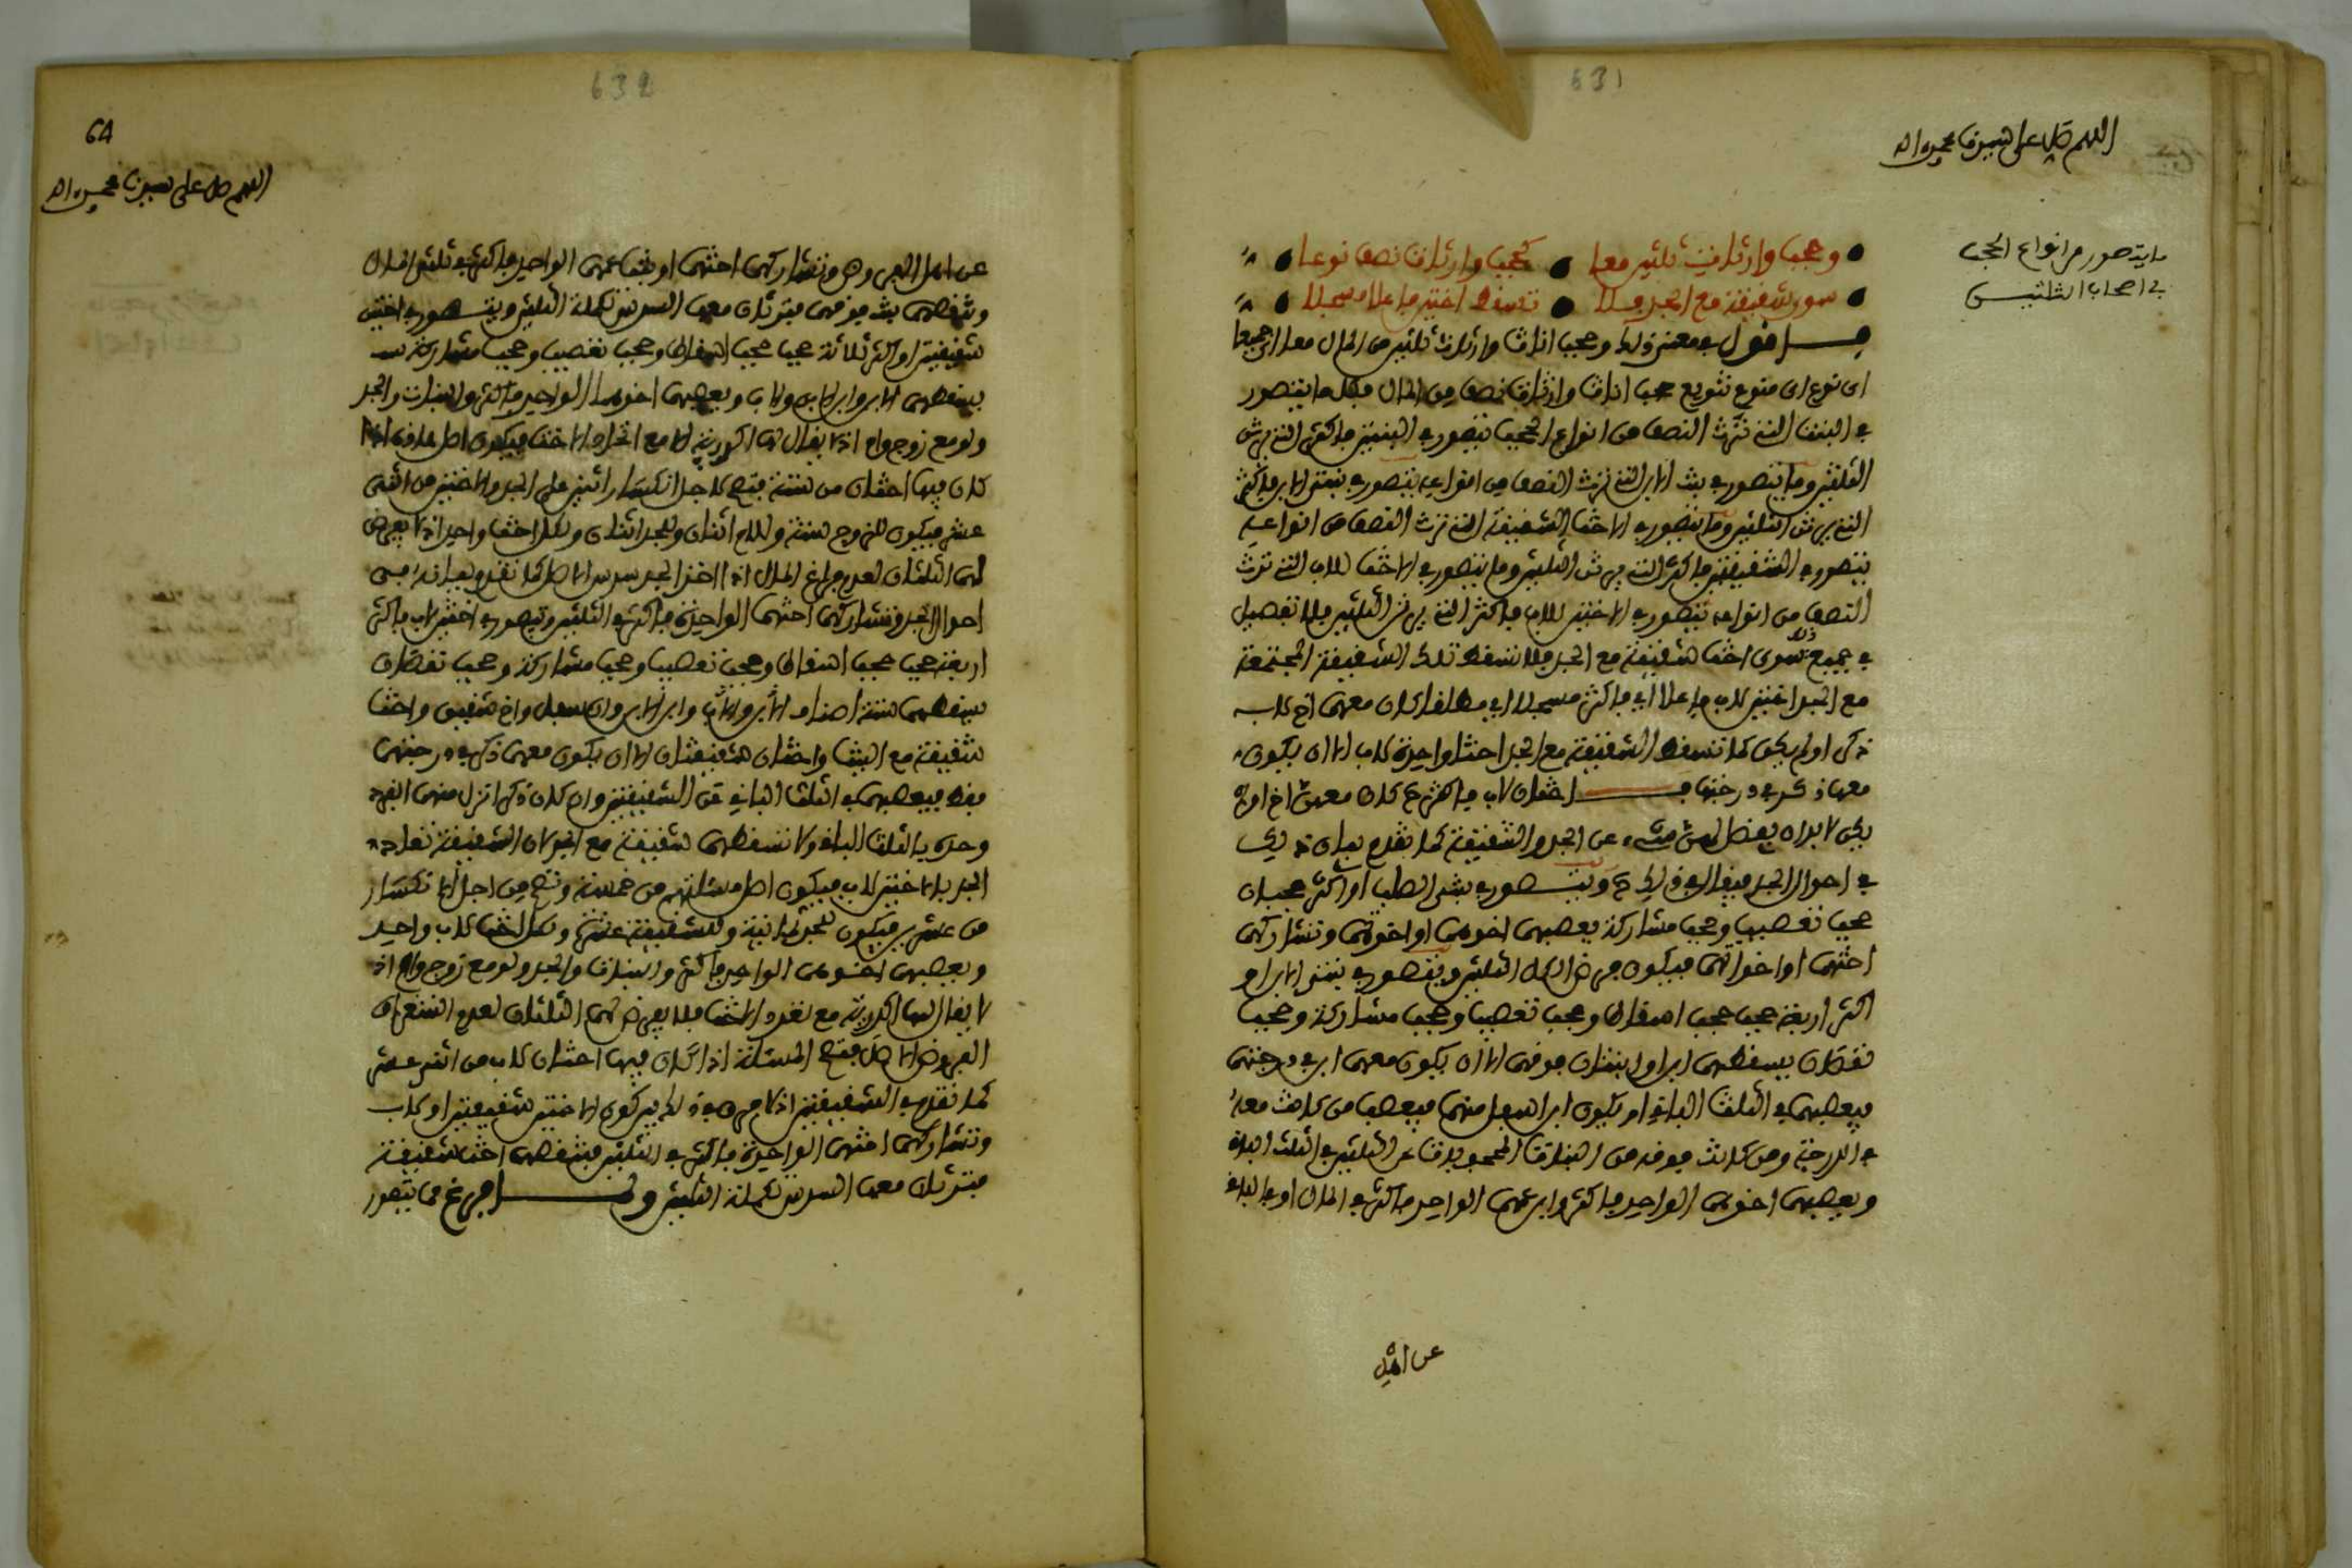 631
اللهم صل على سيدنا محمد واله
ما يتصور من انواع الحجب
في اصحاب الثلثين
وحجب وارثات ثلثين معا • كحجب وارثات نصف نوعا
سوى شقيقة مع الجد فلا • تسقط اختين فاعلا مسجلا
اقول معنى ذلك وحجب اناث وارثات ثلثين من المال معا اي جميعا
اي نوع اي منوع تنويع حجب اناث وارثات نصف من المال فكل ما يتصور
في البنت التي ترث النصف من انواع الحجب يتصور في البنتين فاكثر التي يرثن
الثلثين وما يتصور في بنت الابن التي ترث النصف من انواعه يتصور في بنتي الابن فاكثر
التي يرثن الثلثين وما يتصور في الاخت الشقيقة التي ترث النصف من انواعه
يتصور في الشقيقتين فاكثر التي يرثن الثلثين وما يتصور في الاخت للاب التي ترث
النصف من انواعه يتصور في الاختين للاب فاكثر التي يرثن الثلثين فلا تفصيل
في جميع ذلك سوى اخت شقيقة مع الجد فلا تسقط تلك الشقيقة المجتمعة
مع الجد اختين للاب فاعلا اي فاكثر مسجلا اي مطلقا كان معهن اخ للاب
ذكر او لم يكن كما تسقط الشقيقة مع الجد اختا واحدة للاب الا ان يكون
معها ذكر في درجتها اختان لاب فاكثر كان معهن اخ او لم
يكن لا بد ان يفضل لهن شيء عن الجد والشقيقة كما تقدم بيان ذلك
في احوال الجد ويتصور في بنتي الصلب او اكثر حجبان
حجب تعصيب وحجب مشاركة يعصبهن اخوهن او اخوتهن وتشاركهن
اختهن او اخواتهن فيكون فرض الكل الثلثين ويتصور في بنتي الابن او
اكثر اربعة حجب حجب اسقاط وحجب تعصيب وحجب مشاركة وحجب
نقصان يسقطهن ابن او بنتان فوقهن الا ان يكون معهن ابن في درجتهن
فيعصبهن في الثلث الباقي او يكون ابن اسفل منهن فيعصب من كانت معه
في الدرجة ومن كانت فوقه من البنات المحجوبات عن الثلثين في الثلث الباقي
ويعصبهن اخوهن الواحد فاكثر وابن عمهن الواحد فاكثر في المال او في الباقي
عن اهل
632
64
اللهم صل على سيدنا محمد واله
عن اهل الفروض وتشاركهن اختهن او بنت عمهن الواحدة فاكثر في ثلثي المال
وتنقصهن بنت فوقهن فترثان معها السدس تكملة الثلثين ويتصور في اختين
شقيقتين او اكثر ثلاثة حجب حجب اسقاط وحجب تعصيب وحجب مشاركة
يسقطهن الابن وابن الابن والاب ويعصبهن اخوهما الواحد فاكثر والبنات والجد
ولو مع زوج وام اذ لا يقال لها اكدرية الا مع انفراد الاخت فيكون اصل المسألة اذا
كان فيها اختان من ستة فتصح لاجل انكسار اثنين على الجد والاختين من اثني
عشر فيكون للزوج ستة وللام اثنان وللجد اثنان ولكل اخت واحد اذ لا يفرض
لهن الثلثان لعدم فراغ المال اذا اخذ الجد سدس الاصل كما تقدم بيانه في
احوال الجد وتشاركهن اختهن الواحدة فاكثر في الثلثين ويتصور في اختين لاب فاكثر
اربعة حجب حجب اسقاط وحجب تعصيب وحجب مشاركة وحجب نقصان
يسقطهن ستة اصناف الابن والاب وابن الابن وان سفل واخ شقيق واخت
شقيقة مع البنت واختان شقيقتان الا ان يكون معهن ذكر في درجتهن
فقط فيعصبهن في الثلث الباقي عن الشقيقتين وان كان ذكر انزل منهن انفرد
وحده بالثلث الباقي ولا تسقطهن شقيقة مع الجد لان الشقيقة تعادد
الجد بالاختين للاب فيكون اصل مسألتهم من خمسة وتصح من اجل الانكسار
من عشرين فيكون للجد ثمانية وللشقيقة عشرة ولكل اخت للاب واحد
ويعصبهن اخوهن الواحد فاكثر والبنات والجد ولو مع زوج وام اذ
لا يقال لها اكدرية مع تعدد الاخت فلا يفرض لهن الثلثان لعدم استغراق
الفروض الاصل فتصح المسألة اذا كان فيها اختان لاب من اثني عشر
كما تقدم في الشقيقتين اذ لا فرق في ذلك بين كون الاختين شقيقتين او لاب
وتشاركهن اختهن الواحدة فاكثر في الثلثين وتنقصهن اخت شقيقة
فترثان معها السدس تكملة الثلثين ولما فرغ مما يتصور